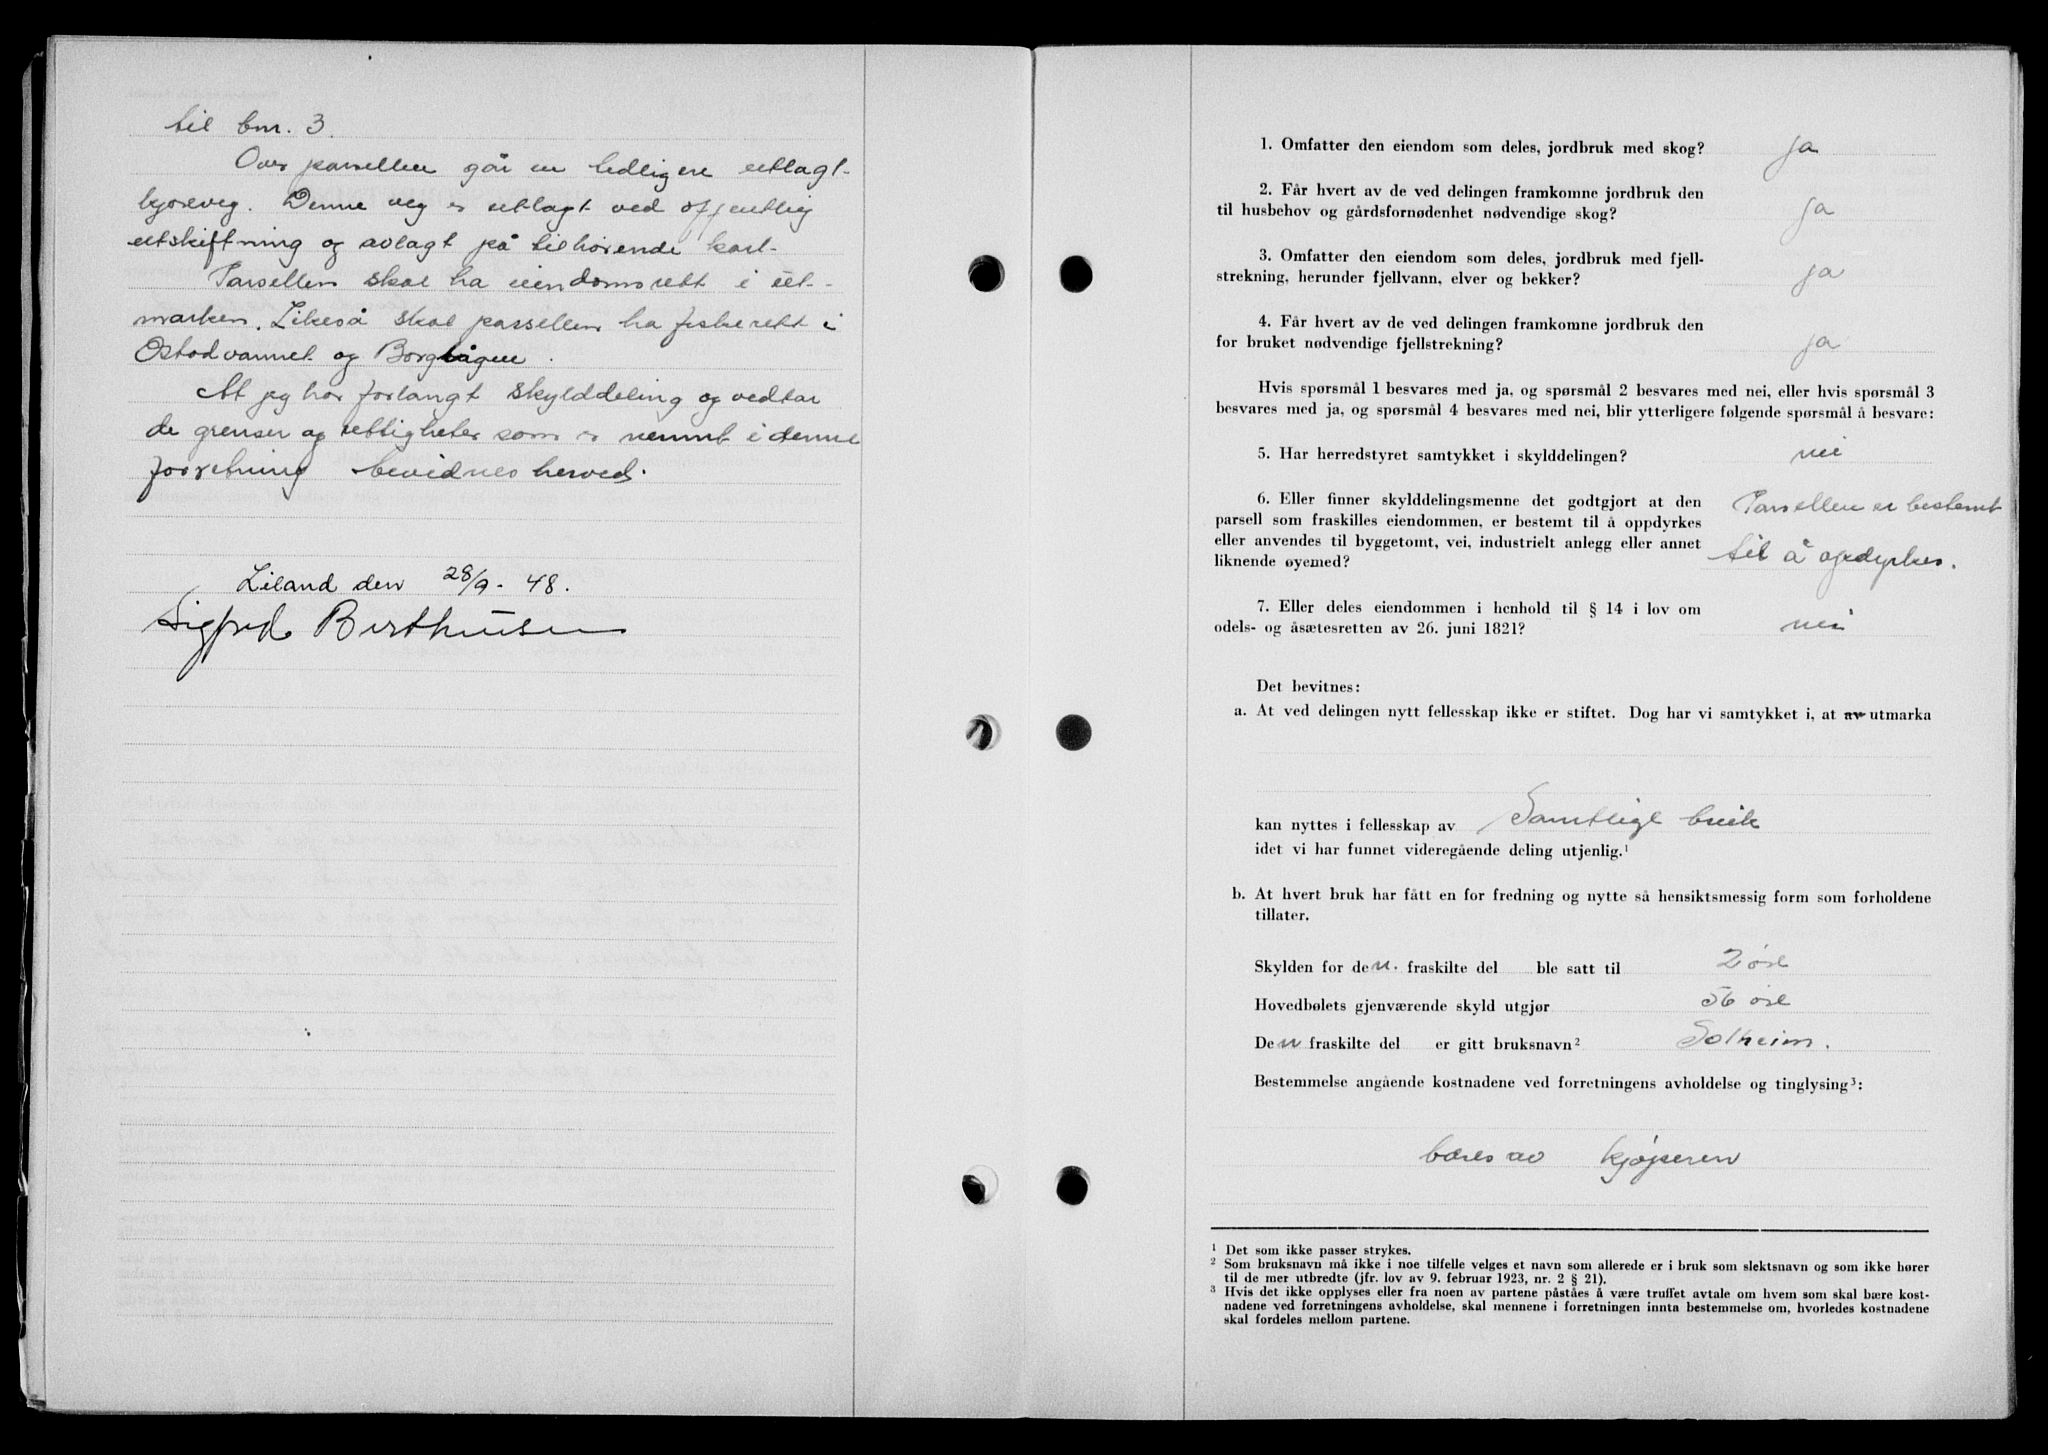 til bnr. 3.
Over parsellen går en tidligere utlagt
kjøreveg. Denne veg er utlagt ved offentlig
utskiftning og avlagt på tilhørende kart.
Parsellen skal ha eiendomsrett i ut-
marken. Likeså skal parsellen ha fiskerett i
Ostadvannet og Borgvågen.
At jeg har forlangt skylddeling og vedtar
de grenser og rettigheter som er nevnt i denne
forretning bevidnes herved.
Liland den 28/9 - 48.
Sigfred Bertheusen
1. Omfatter den eiendom som deles, jordbruk med skog? ja
2. Får hvert av de ved delingen framkomne jordbruk den
til husbehov og gårdsfornødenhet nødvendige skog? ja
3. Omfatter den eiendom som deles, jordbruk med fjell-
strekning, herunder fjellvann, elver og bekker? ja
4. Får hvert av de ved delingen framkomne jordbruk den
for bruket nødvendige fjellstrekning? ja
Hvis spørsmål 1 besvares med ja, og spørsmål 2 besvares med nei, eller hvis spørsmål 3
besvares med ja, og spørsmål 4 besvares med nei, blir ytterligere følgende spørsmål å besvare:
5. Har herredstyret samtykket i skylddelingen? nei
6. Eller finner skylddelingsmenne det godtgjort at den
parsell som fraskilles eiendommen, er bestemt til å oppdyrkes
eller anvendes til byggetomt, vei, industrielt anlegg eller annet
liknende øyemed?
Parsellen er bestemt
til å opdyrkes.
7. Eller deles eiendommen i henhold til § 14 i lov om
odels- og åsætesretten av 26. juni 1821? nei
Det bevitnes:
a. At ved delingen nytt fellesskap ikke er stiftet. Dog har vi samtykket i, at av utmarka
kan nyttes i fellesskap av Samtlige bruk
idet vi har funnet videregående deling utjenlig.¹
b. At hvert bruk har fått en for fredning og nytte så hensiktsmessig form som forholdene
tillater.
Skylden for den fraskilte del ble satt til 2 øre
Hovedbølets gjenværende skyld utgjør 56 øre
Den fraskilte del er gitt bruksnavn² Solheim.
Bestemmelse angående kostnadene ved forretningens avholdelse og tinglysing³:
bæres av kjøperen
¹ Det som ikke passer strykes.
² Som bruksnavn må ikke i noe tilfelle velges et navn som allerede er i bruk som slektsnavn og som ikke hører
til de mer utbredte (jfr. lov av 9. februar 1923, nr. 2 § 21).
³ Hvis det ikke opplyses eller fra noen av partene påståes å være truffet avtale om hvem som skal bære kost-
nadene ved forretningens avholdelse, skal mennene i forretningen innta bestemmelse om, hvorledes kostnadene
skal fordeles mellom partene.